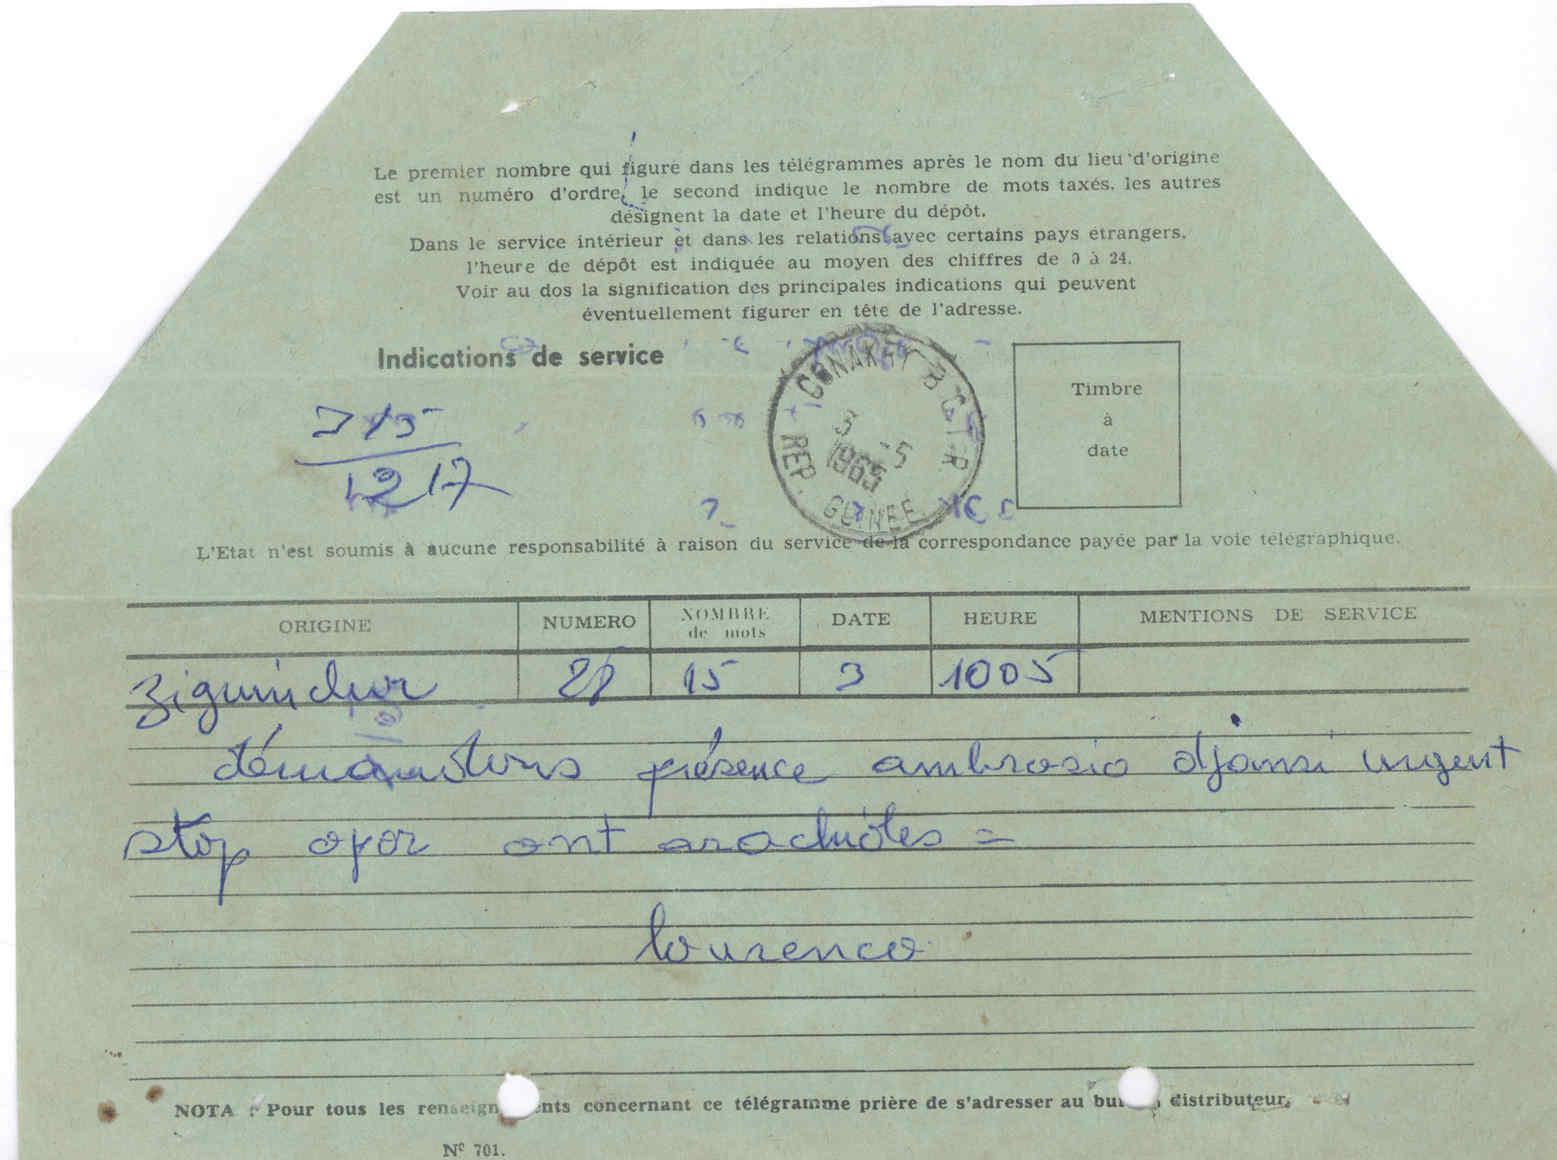 Le premier nombre qui figure dans les télégrammes après le nom du lieu d'origine
est un numéro d'ordre, le second indique le nombre de mots taxés, les autres
désignent la date et l'heure du dépôt.
Dans le service intérieur et dans les relations avec certains pays étrangers,
l'heure de dépôt est indiquée au moyen des chiffres de 0 à 24.
Voir au dos la signification des principales indications qui peuvent
éventuellement figurer en tête de l'adresse.
Indications de service
CONAKRY B.C.T.R.
3 -5
1965
REP. GUINEE
Timbre
à
date
1217
L'Etat n'est soumis à aucune responsabilité à raison du service de la correspondance payée par la voie télégraphique.
ORIGINE NUMERO NOMBRE de mots DATE HEURE MENTIONS DE SERVICE
ziguinchor 15 3 1005
démandons présence ambrosio djansi urgent
stop ont =
lourenco
NOTA : Pour tous les concernant ce télégramme prière de s'adresser au distributeur.
Nº 701.